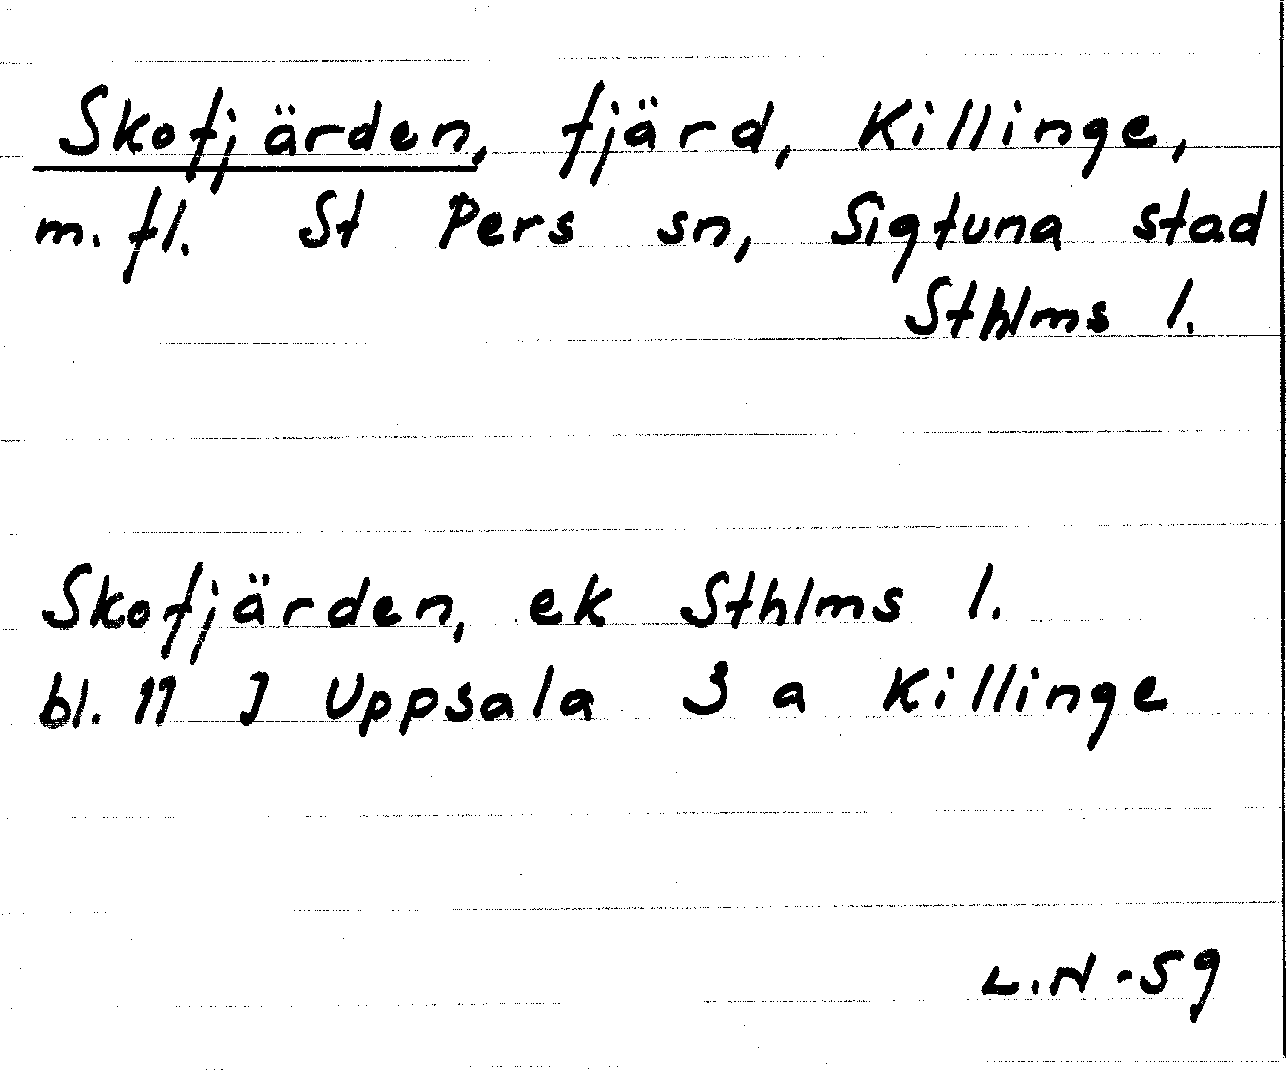 Skofjärden, fjärd, Killinge,
m. fl. St Pers sn, Sigtuna stad
Sthlms l.
Skofjärden, ek Sthlms l.
bl. 11 J Uppsala 3 a Killinge
L.N -59